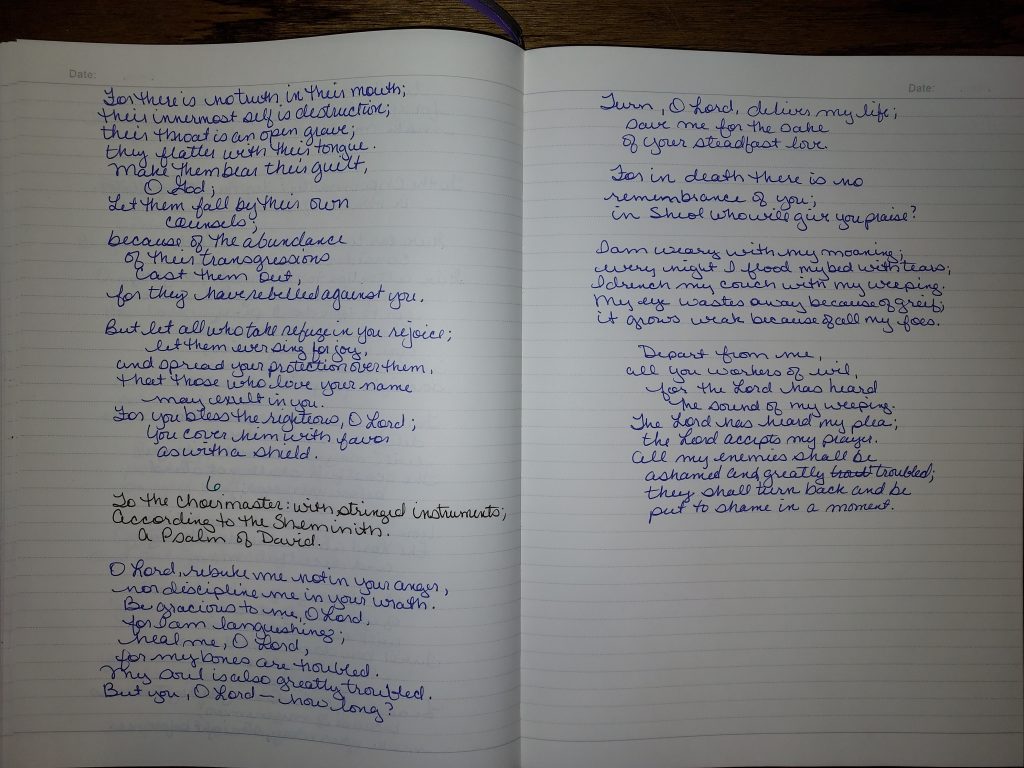 Date:
For there is no truth in their mouth;
their innermost self is destruction;
their throat is an open grave;
they flatter with their tongue.
Make them bear their guilt,
O God;
Let them fall by their own
counsels;
because of the abundance
of their transgressions
cast them out,
for they have rebelled against you.
But let all who take refuge in you rejoice;
let them ever sing for joy,
and spread your protection over them,
that those who love your name
may exult in you.
For you bless the righteous, O Lord;
you cover him with favor
as with a shield.
6
To the Choirmaster: with stringed instruments;
According to the Sheminith.
A Psalm of David.
O Lord, rebuke me not in your anger,
nor discipline me in your wrath.
Be gracious to me, O Lord,
for I am languishing;
heal me, O Lord,
for my bones are troubled.
My soul is also greatly troubled.
But you, O Lord — how long?
Date:
Turn, O Lord, deliver my life;
save me for the sake
of your steadfast love.
For in death there is no
remembrance of you;
in Sheol who will give you praise?
I am weary with my moaning;
every night I flood my bed with tears;
I drench my couch with my weeping.
My eye wastes away because of grief;
it grows weak because of all my foes.
Depart from me,
all you workers of evil,
for the Lord has heard
the sound of my weeping.
The Lord has heard my plea;
the Lord accepts my prayer.
All my enemies shall be
ashamed and greatly troubled;
they shall turn back and be
put to shame in a moment.